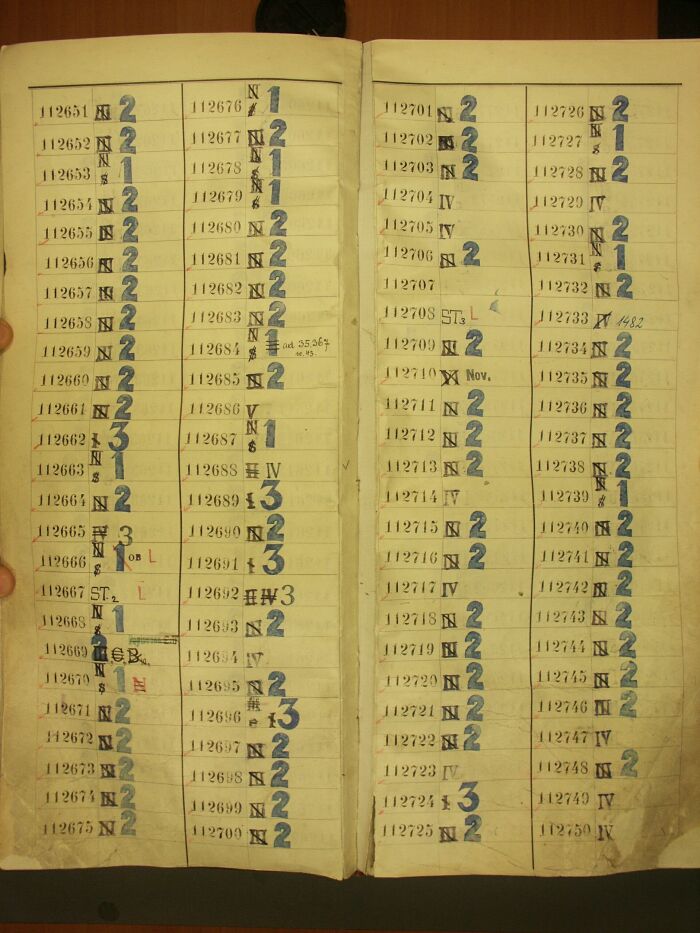 112651 N 2
112652 N 2
112653 N $ 1
112654 N 2
112655 N 2
112656 N 2
112657 N 2
112658 N 2
112659 N 2
112660 N 2
112661 N 2
112662 1 3
112663 N $ 1
112664 N 2
112665 IV 3
112666 N $ 1 OB L
112667 ST.2 L
112668 N $ 1
112669 2
112670 N $ 1 N
112671 N 2
112672 N 2
112673 N 2
112674 N 2
112675 N 2
112676 N $ 1
112677 N 2
112678 N $ 1
112679 N $ 1
112680 N 2
112681 N 2
112682 N 2
112683 N 2
112684 N $ 1 ad 35,367
112685 N 2
112686 V
112687 N $ 1
112688 II IV
112689 1 3
112690 N 2
112691 1 3
112692 II IV 3
112693 N 2
112694 IV
112695 N 2
112696 e 1 3
112697 N 2
112698 N 2
112699 N 2
112700 N 2
112701 N 2
112702 N 2
112703 N 2
112704 IV
112705 IV
112706 N 2
112707
112708 ST3 L
112709 N 2
112710 Nov.
112711 N 2
112712 N 2
112713 N 2
112714 IV
112715 N 2
112716 N 2
112717 IV
112718 N 2
112719 N 2
112720 N 2
112721 N 2
112722 N 2
112723 IV
112724 1 3
112725 N 2
112726 N 2
112727 N $ 1
112728 N 2
112729 IV
112730 N 2
112731 N $ 1
112732 N 2
112733 IV 1482
112734 N 2
112735 N 2
112736 N 2
112737 N 2
112738 N 2
112739 N $ 1
112740 N 2
112741 N 2
112742 N 2
112743 N 2
112744 N 2
112745 N 2
112746 N 2
112747 IV
112748 N 2
112749 IV
112750 IV